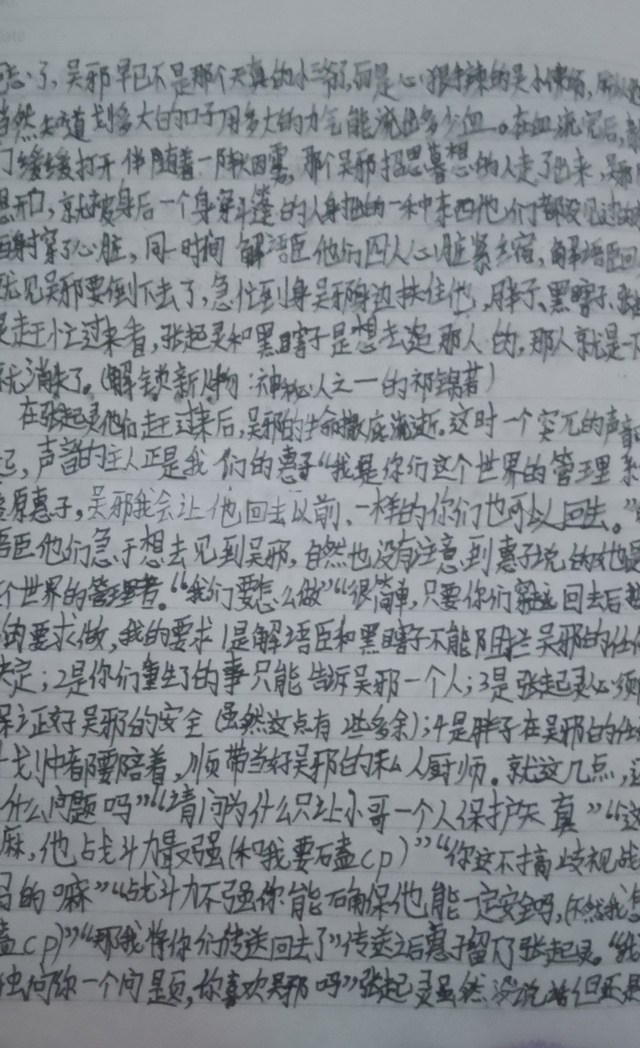 忘了，吴邪早已不是那个天真的小三爷了，而是心狠手辣的吴小佛爷，
当然知道划多大的口子用多大的力气能流出多少血。在血流完后，
门缓缓打开伴随着一阵那个吴邪招思暮想的人走了出来，吴邪
想开口，就被身后一个身穿斗篷的人身拙的一种东西他们都没见过的
西射穿了心脏，同一时间 解语臣他们四人心脏紧缩，解语臣回
就见吴邪要倒下去了，急忙到身吴邪身边扶住他，胖子、黑瞎子、张起
灵赶忙过来看，张起灵和黑瞎子是想去追那人的，那人就是一下
就消失了。(解锁新人物：神秘人之一的祁锦若)
在张起灵他们赶过来后，吴邪的生命撤底流逝。这时一个突兀的声音
起，声音的主人正是我们的惠子“我是你们这个世界的管理系
原惠子，吴邪我会让他回去以前、一样的你们也可以回去。”
语臣他们急于想去见到吴邪，自然也没有注意到惠子说的他是
个世界的管理者。“我们要怎么做”“很简单，只要你们回去后
的要求做，我的要求1是解语臣和黑瞎子不能阻拦吴邪的任何
决定；2是你们重生了的事只能告诉吴邪一个人；3是张起灵必须
保证好吴邪的安全（虽然这点有些多余）；4是胖子在吴邪的任何
计划中都要陪着，顺带当好吴邪的私人厨师。就这几点，
什么问题吗”“请问为什么只让小哥一个人保护天真”“这
麻，他占战斗力最强（和我要磕cp）”“你这不搞歧视战
吗的嘛”“战斗力不强你能确保他能一定安全吗，（不然我
磕cp）”“那我将你们传送回去了”传送之后惠子留了张起灵。“我
独问你一个问题，你喜欢吴邪吗”张起灵虽然没说话但还是